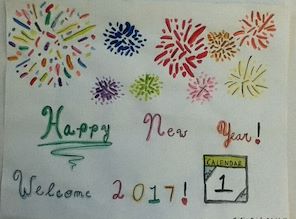 Happy New Year!
CALENDAR
1
Welcome 2017!